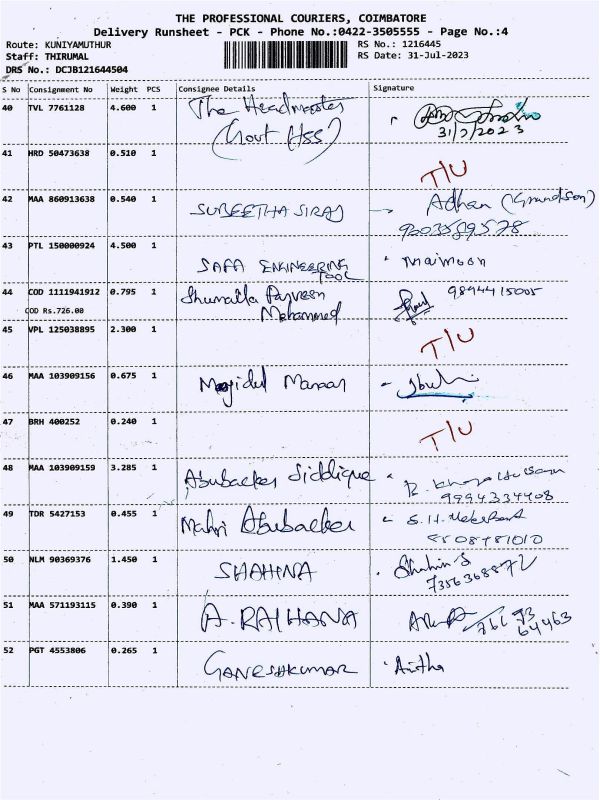 THE PROFESSIONAL COURIERS, COIMBATORE
Delivery Runsheet - PCK - Phone No.:0422-3505555 - Page No.:4
Route: KUNIYAMUTHUR RS No.: 1216445
Staff: THIRUMAL RS Date: 31-Jul-2023
DRS No.: DCJB121644504
S No Consignment No Weight PCS Consignee Details Signature
40 TVL 7761128 4.600 1 The Headmaster
(Govt HSS) 31/7/2023
41 HRD 50473638 0.510 1 T/U
42 MAA 860913638 0.540 1 SUREETHA SIRAJ Adhan (Grandson)
9003589578
43 PTL 150000924 4.500 1 SAFA ENGINEERING TOOL maimoon
44 COD 1111941912 0.795 1 Parveen 9894415005
COD Rs.726.00 Mohammed
45 VPL 125038895 2.300 1 T/U
46 MAA 103909156 0.675 1 Majidul Manaar
47 BRH 400252 0.240 1 T/U
48 MAA 103909159 3.285 1 Abubacker Siddique
9994334408
49 TDR 5427153 0.455 1 Mahri Abubacker
8508781010
50 NLM 90369376 1.450 1 SHAHINA Shahin S
7356368872
51 MAA 571193115 0.390 1 A. RAIHANA
52 PGT 4553806 0.265 1 GANESHKUMAR Anitha